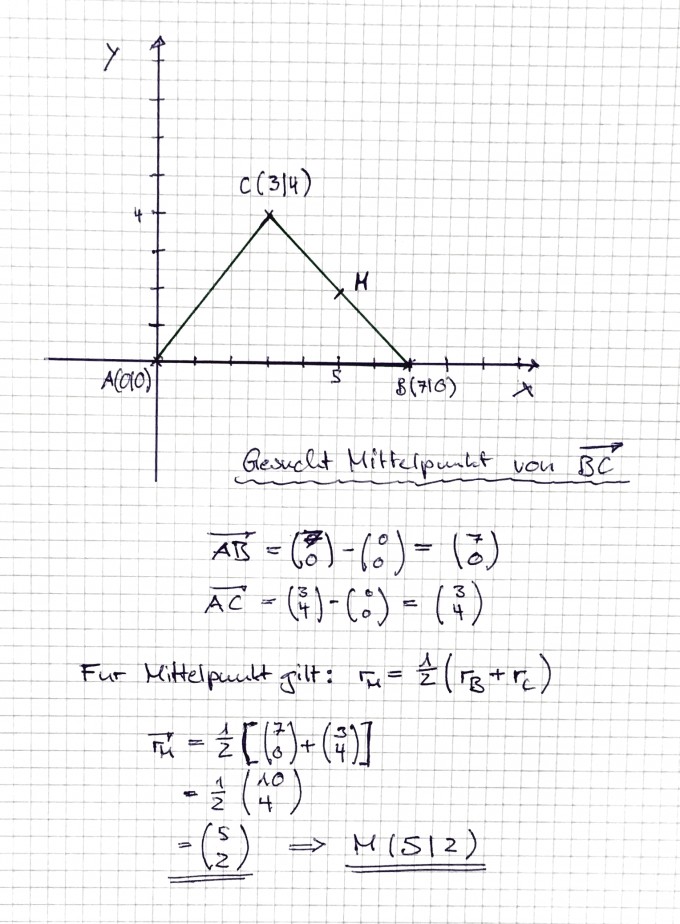 y
C(3|4)
4
M
A(0|0)
5
B(7|0)
x
Gesucht Mittelpunkt von \overrightarrow{BC}
\overrightarrow{AB} = (7 0) - (0 0) = (7 0)
\overrightarrow{AC} = (3 4) - (0 0) = (3 4)
Fur Mittelpunkt gilt: r_M = 1/2 (r_B + r_C)
\overrightarrow{r_M} = 1/2 [(7 0) + (3 4)]
= 1/2 (10 4)
= (5 2) ⇒ M(5|2)